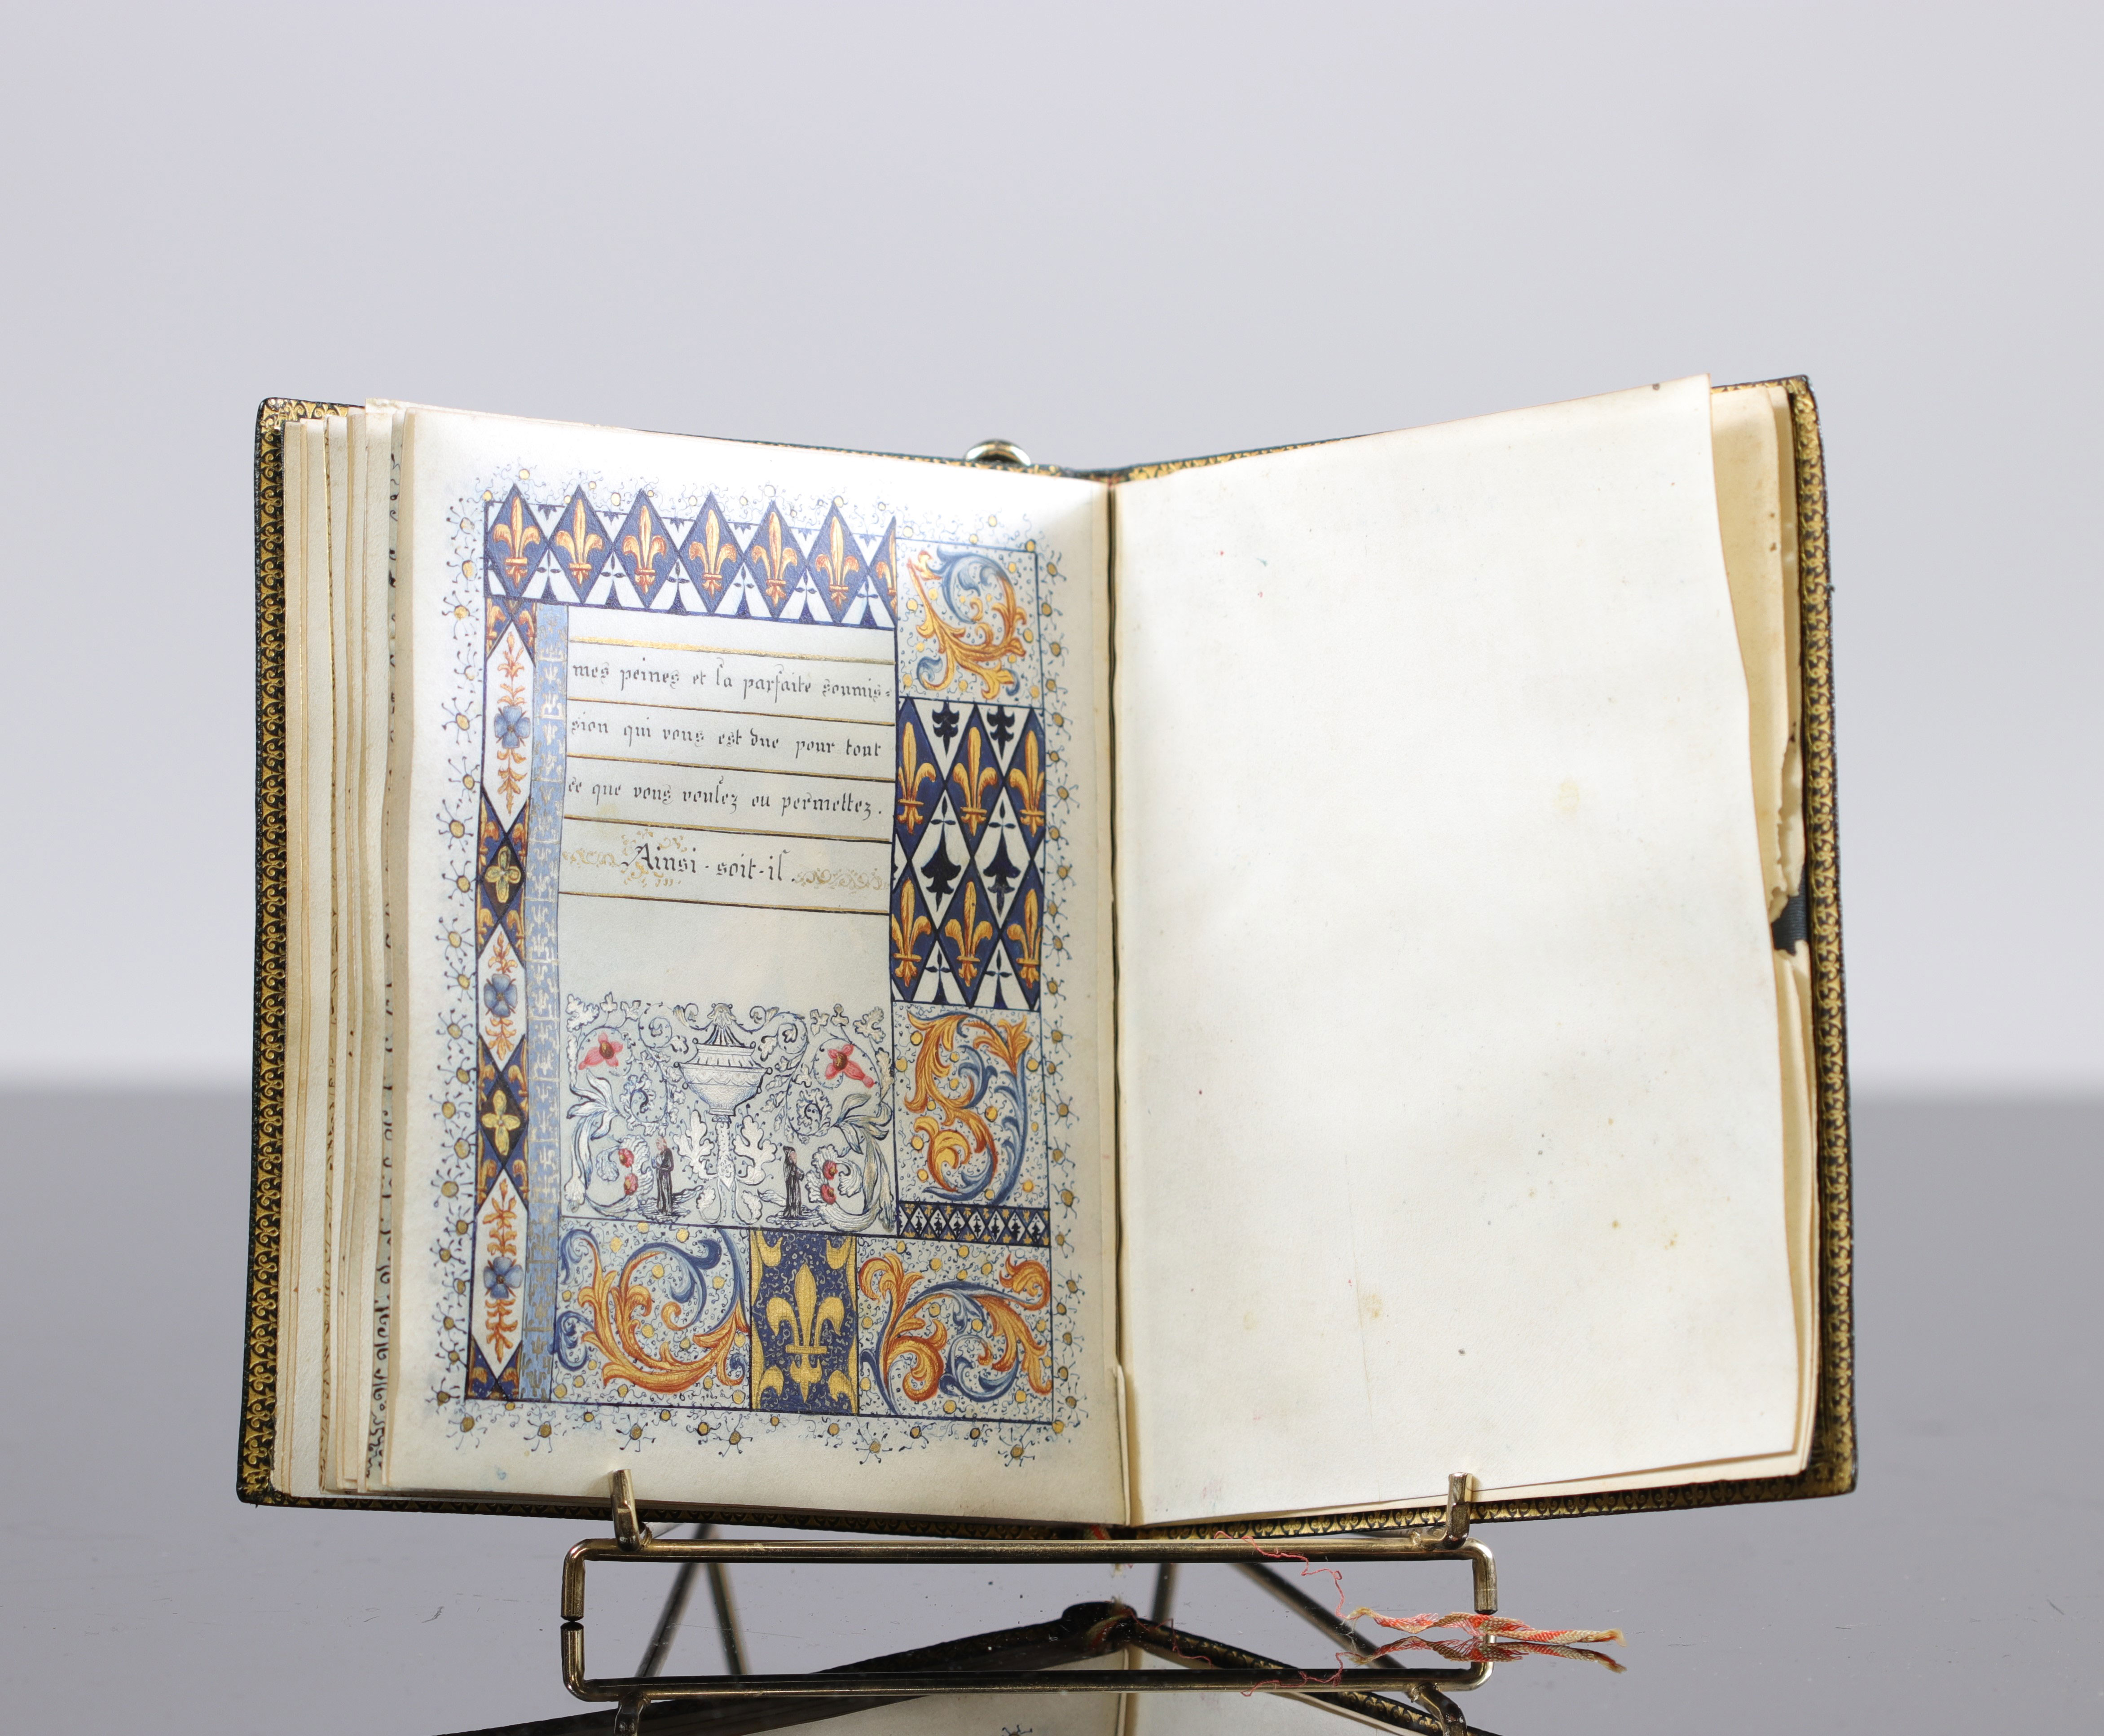 mes peines et la parfaite soumis=
sion qui vous est due pour tout
ce que vous voulez ou permettez.
Ainsi-soit-il.